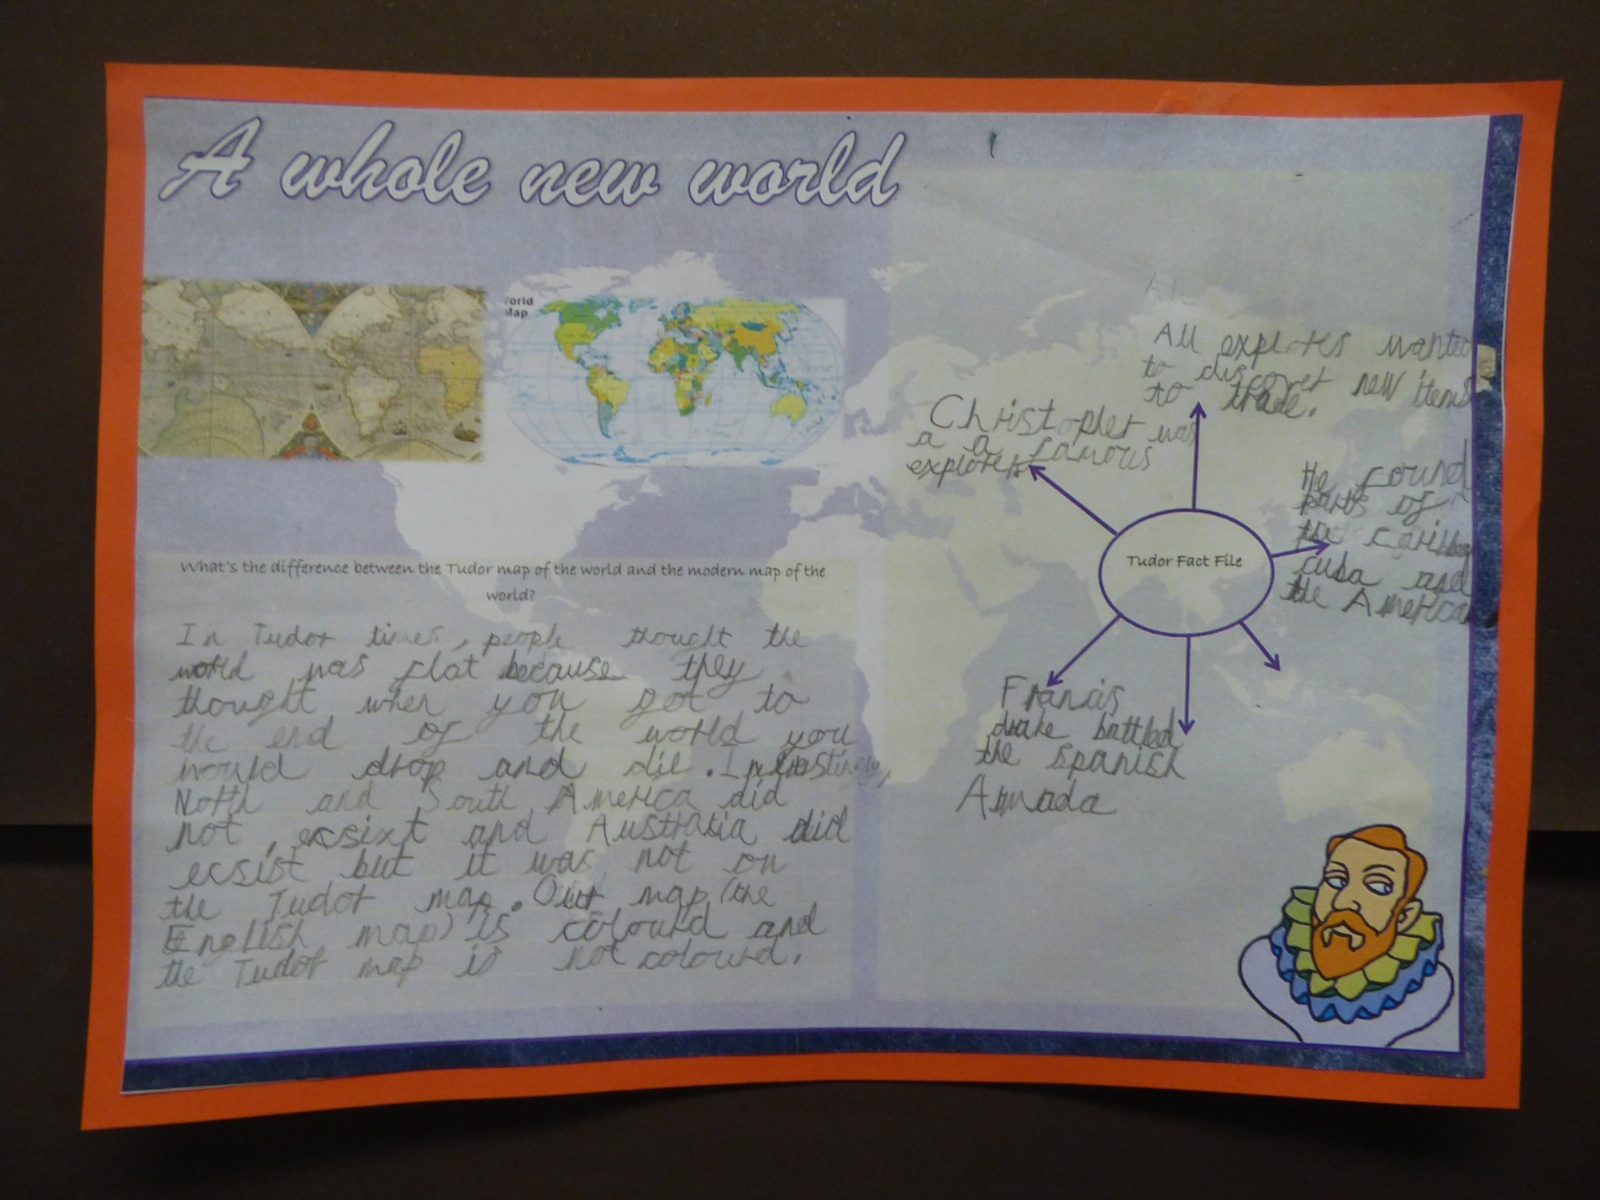 A whole new world
World
Map
What's the difference between the Tudor map of the world and the modern map of the
world?
In Tudor times, people thought the
world was flat because they
thought when you got to
the end of the world you
would drop and die.
North and South America did
not, ecsixt and Australia did
ecsist but it was not on
the Tudor map. Our map (the
English map) is colourd and
the Tudor map is not colourd.
Tudor Fact File
All explores wanted
to discover new items
to trade.
Christopher was
a a famous
explorer
He found
parts of
the
cuba and
the America
Francis
drake battled
the spanish
Armada